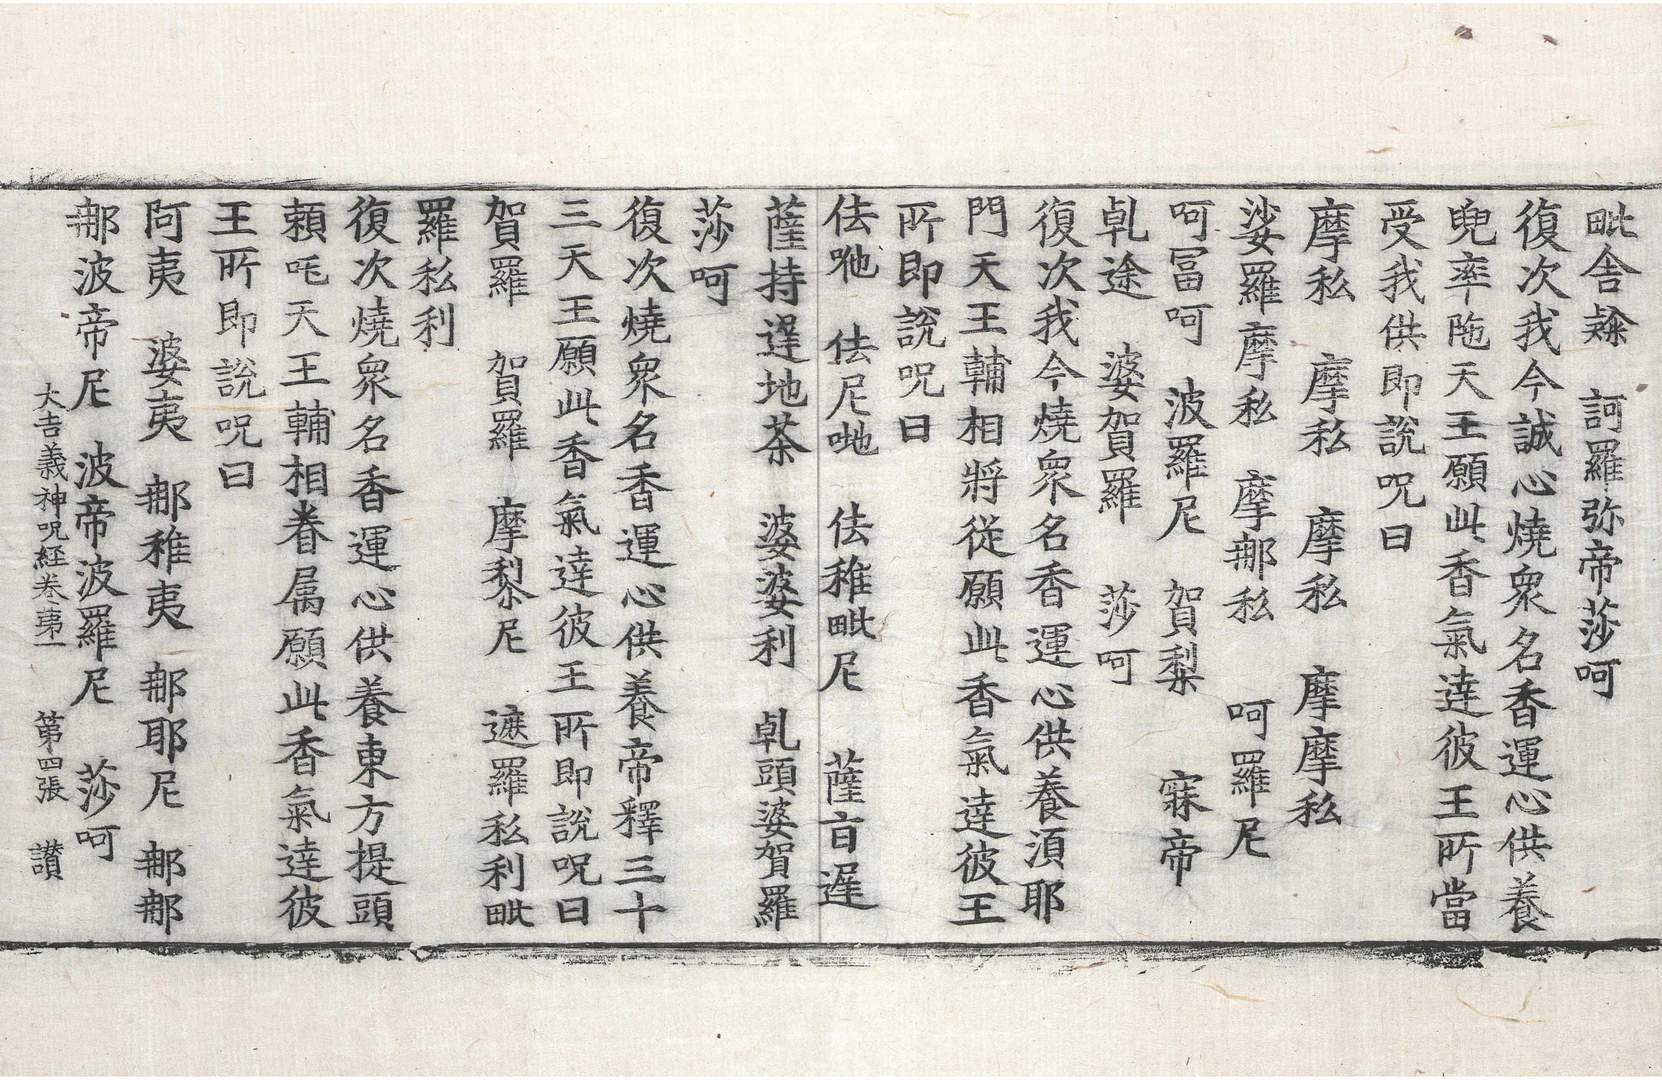 毗舍㝹　訶羅弥帝莎呵
復次我今誠心燒衆名香運心供養
兜率陁天王願此香氣達彼王所當
受我供即說呪曰
摩私　摩私　摩私　摩摩私
娑羅摩私　摩那私　呵羅尼
呵冨呵　波羅尼　賀梨　寐帝
乹途　婆賀羅　莎呵
復次我今燒衆名香運心供養湏耶
門天王輔相將從願此香氣達彼王
所即說呪曰
佉吔　佉尼吔　佉稚毗尼　薩盲遲
薩持遅地茶　婆婆利　乹頭婆賀羅
莎呵
復次燒衆名香運心供養帝釋三十
三天王願此香氣達彼王所即說呪曰
賀羅　賀羅　摩黎尼　遮羅私利毗
羅私利
復次燒衆名香運心供養東方提頭
頼吒天王輔相眷属願此香氣達彼
王所即說呪曰
阿夷　婆夷　那稚夷　那耶尼　那那
那波帝尼　波帝波羅尼　莎呵
大吉義神呪經卷第一　第四張　讃